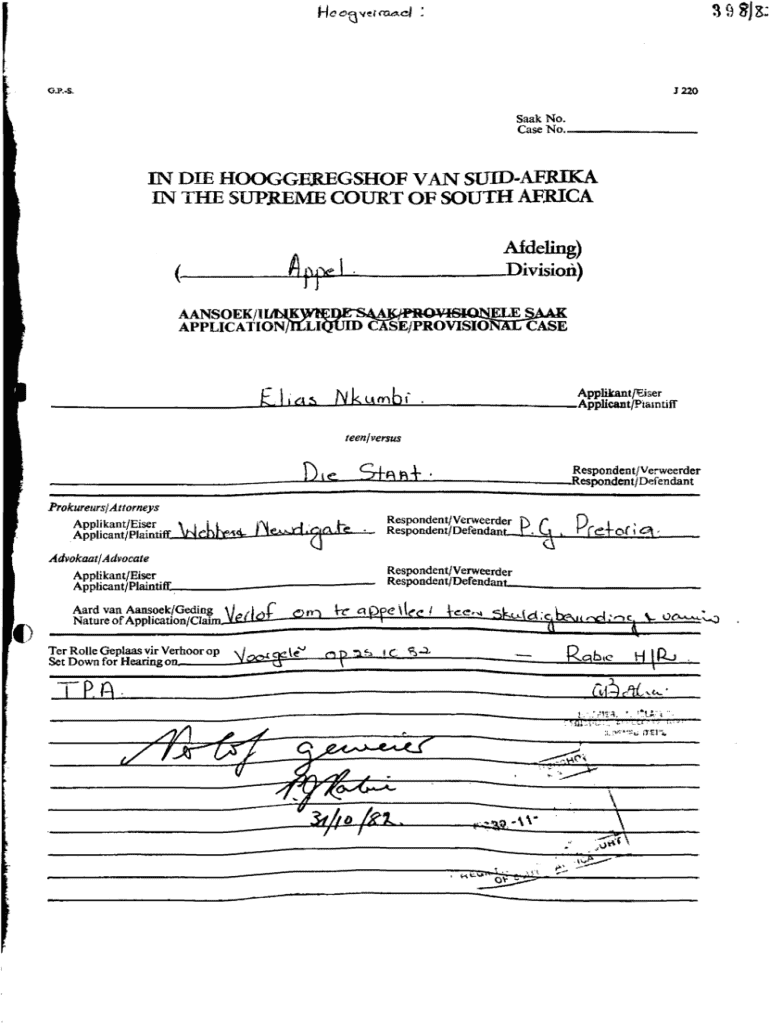 Hoogverraad :
398/8
G.P.-S.
J 220
Saak No.
Case No.
IN DIE HOOGGEREGSHOF VAN SUID-AFRIKA
IN THE SUPREME COURT OF SOUTH AFRICA
Afdeling)
( Appel. Division)
AANSOEK/ILLIKWIEDE SAAK/PROVISIONELE SAAK
APPLICATION/ILLIQUID CASE/PROVISIONAL CASE
Elias Nkumbi. Applikant/Eiser
Applicant/Plaintiff
teen/versus
Die Staat. Respondent/Verweerder
Respondent/Defendant
Prokureurs/Attorneys
Applikant/Eiser Respondent/Verweerder
Applicant/Plaintiff Webbers Newdigate. Respondent/Defendant P.G. Pretoria.
Advokaat/Advocate
Applikant/Eiser Respondent/Verweerder
Applicant/Plaintiff Respondent/Defendant
Aard van Aansoek/Geding
Nature of Application/Claim Verlof om te appelleer teen skuldigbevinding + vonnis
Ter Rolle Geplaas vir Verhoor op
Set Down for Hearing on Voorgelê op 25 10 82 — Rabie H/R.
T.P.A.
Verlof geweier
PJ Rabie
31/10/82.
-11-